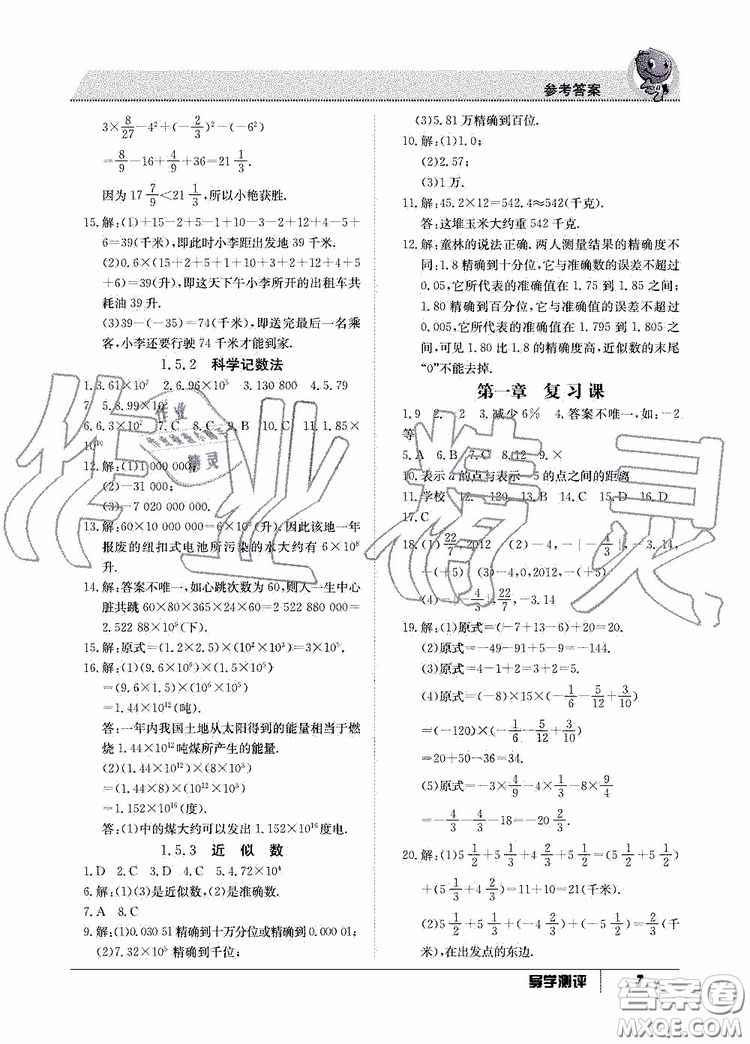 参考答案
3×8/27−4²+(−2/3)²−(−6²)
=8/9−16+4/9+36=21 1/3.
因为 17 7/9<21 1/3,所以小艳获胜.
15.解:(1)+15−2+5−1+10−3−2+12+4−5+
6=39(千米),即此时小李距出发地 39 千米.
(2)0.6×(15+2+5+1+10+3+2+12+4+5+
共耗油 39 升.
(3)39−(−35)=74(千米),即送完最后一名乘
客,小李还要行驶 74 千米才能到家.
1.5.2 科学记数法
1.3.61×10⁷ 2.6.96×10⁵ 3.130 800 4.5.79
6.6.3×10³ 7.C 8.C 9.C 10.C 11.1.85×
10¹⁰
12.解:(1)1 000 000;
(2)−31 000;
(3)−7 020 000 000.
13.解:60×10 000 000=6×10⁸(升). 因此该地一年
报废的纽扣式电池所污染的水大约有 6×10⁸
升.
14.解:答案不唯一,如心跳次数为 60,则人一生中心
脏共跳 60×60×24×365×80=2 522 880 000=
15.解:原式=(1.2×2.5)×(10²×10³)=3×10⁵.
16.解:(1)(9.6×10⁶)×(1.5×10⁵)
=(9.6×1.5)×(10⁶×10⁵)
=1.44×10¹²(吨)
答:一年内我国土地从太阳得到的能量相当于燃
烧 1.44×10¹²吨煤所产生的能量.
(2)(1.44×10¹²)×(8×10³)
=(1.44×8)×(10¹²×10³)
=1.152×10¹⁶(度).
答:(1)中的煤大约可以发出 1.152×10¹⁶度电.
1.5.3 近似数
1.D 2.C 3.D 4.C 5.4.72×10⁴
6.解:(1)(3)是近似数;(2)(4)是准确数.
7.A 8.C
9.解:(1)0.030 51 精确到十万分位或精确到0.000 01;
(2)7.32×10⁵ 精确到千位;
(3)5.81 万精确到百位.
10.解:(1)1.0;
(2)2.57;
(3)1 万.
11.解:45.2×12=542.4≈542(千克).
答:这堆玉米大约重 542 千克.
12.解:童林的说法正确. 两人测量结果的精确度不
同:1.8 精确到十分位,它与准确数的误差不超过
0.05,它所代表的准确值在 1.75 到 1.85 之间;
1.80 精确到百分位,它与准确数的误差不超过
0.005,它所代表的准确值在 1.795 到 1.805 之
间. 1.80 比 1.8 的精确度高,近似数的末尾
“0”不能去掉.
第一章 复习课
1.9 2.−2 3.减少 6% 4.答案不唯一,如:−2
等
5.A 6.B 7.B 8.B 9.×
10.表示 a 的点与表示−5 的点之间的距离
11.学校 12.−120 13.B 14.C 15.D 16.D
17.C
18.(1)22/7,2012 (2)−4,−|−4/3|,−3.14,
−(+5) (3)−4,0,2012,−(+5)
(4)−|−4/3|,22/7,−3.14
19.解:(1)原式=(−7+13−6)+20=20.
(2)原式=−49−91+5−9=−144.
(3)原式=4−1+2=3+2=5.
(4)原式=(−8)×15×(−1/6−5/12+3/10)
=(−120)×(−1/6−5/12+3/10)
=20+50−36=34.
(5)原式=−3×4/9−4−2/3
=−4/3−4/3−18=−20 2/3.
20.解:(1)5 1/2+5 1/2+4 2/3
=11+10=21(千米).
在出发点的东边.
导学测评 7
作业精灵
答案圈
MXQE.COM